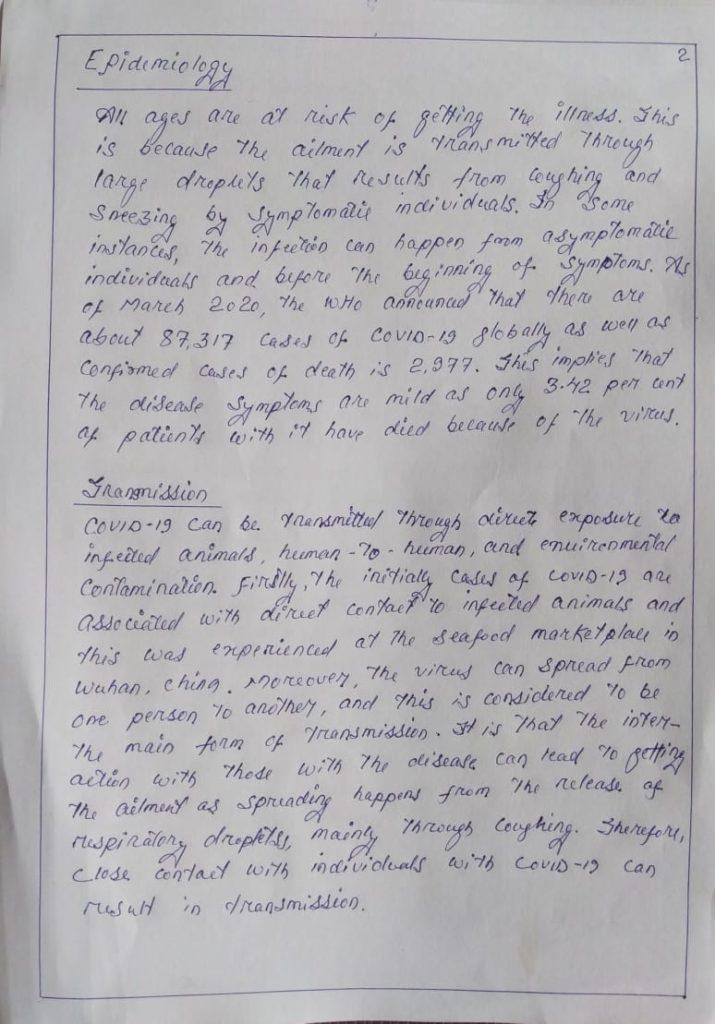 2
Epidemiology
All ages are at risk of getting the illness. This
is because the ailment is transmitted through
large droplets that results from coughing and
Sneezing by symptomatic individuals. In some
instances, the infection can happen from asymptomatic
individuals and before the beginning of symptoms. As
of March 2020, the WHO announced that there are
about 87,317 cases of COVID-19 globally as well as
Confirmed cases of death is 2,977. This implies that
the disease symptoms are mild as only 3.42 per cent
of patients with it have died because of the virus.
Transmission
COVID-19 can be transmitted through direct exposure to
infected animals, human-to-human, and environmental
Contamination. Firstly, the initially cases of COVID-19 are
associated with direct contact to infected animals and
this was experienced at the seafood marketplace in
Wuhan, China. Moreover, the virus can spread from
one person to another, and this is considered to be
the main form of transmission. It is that the inter-
action with those with the disease can lead to getting
the ailment as spreading happens from the release of
respiratory droplets, mainly through coughing. Therefore,
close contact with individuals with COVID-19 can
result in transmission.